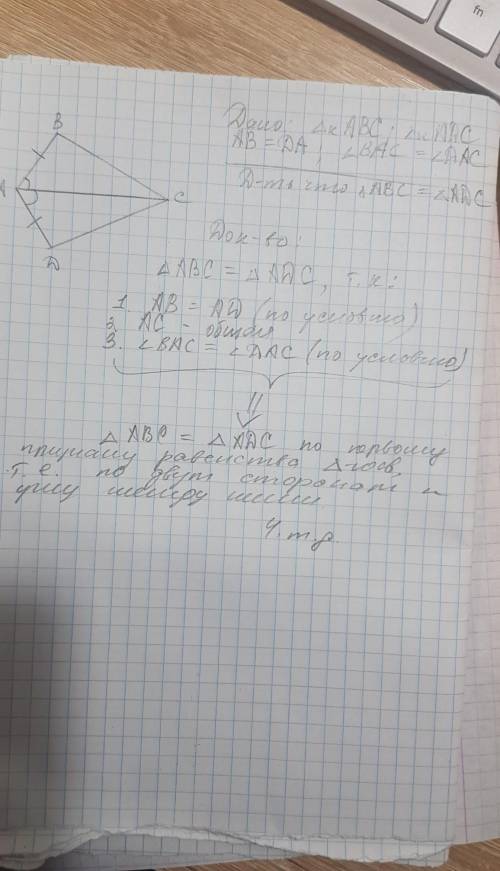 B
A
C
D
Дано: △к ABC; △к DAC
AB = DA, ∠BAC = ∠DAC
Д-ть что △ABC = △ADC
Док-во:
△ABC = △ADC, т.к:
1. AB = AD (по условию)
2. AC - общая
3. ∠BAC = ∠DAC (по условию)
△ABC = △ADC по первому
признаку равенства △-ков,
т.е. по двум сторонам и
углу между ними
Ч.т.д.
fn